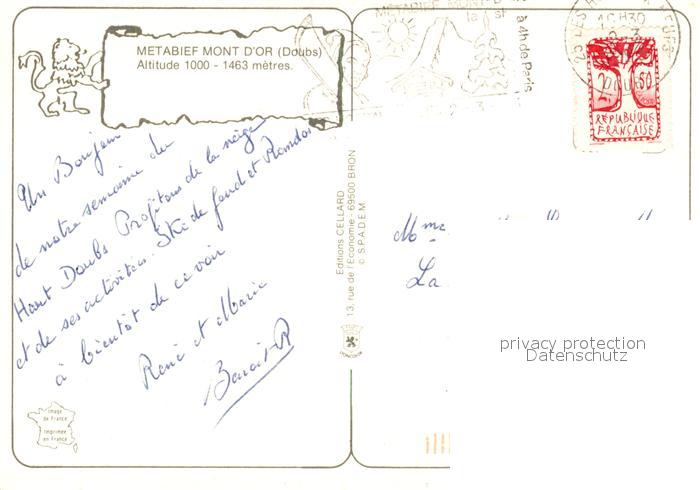 METABIEF MONT D'OR (Doubs)
Altitude 1000 - 1463 mètres.
Un Bonjour
de notre semaine du
Haut Doubs Profitons de la neige
et de ses activités. Ski de fond et Randos
à bientôt de ce voir
René et Marie
Benoit R
image
de France
Imprimée
en France
Editions CELLARD
13, rue de l'Economie - 69500 BRON
© S.P.A.D.E.M.
METABIEF MONT D'
la st
à 4h de Paris
25 LES H
16H30
2 50
REPUBLIQUE
FRANÇAISE
Mme
La
privacy protection
Datenschutz